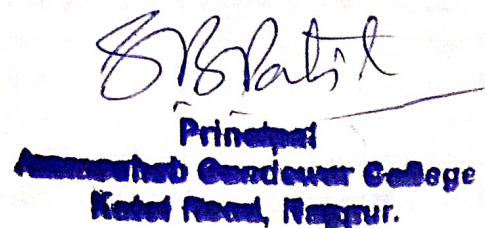 SBPatil
Principal
Annasaheb Gundewar College
Katol Road, Nagpur.